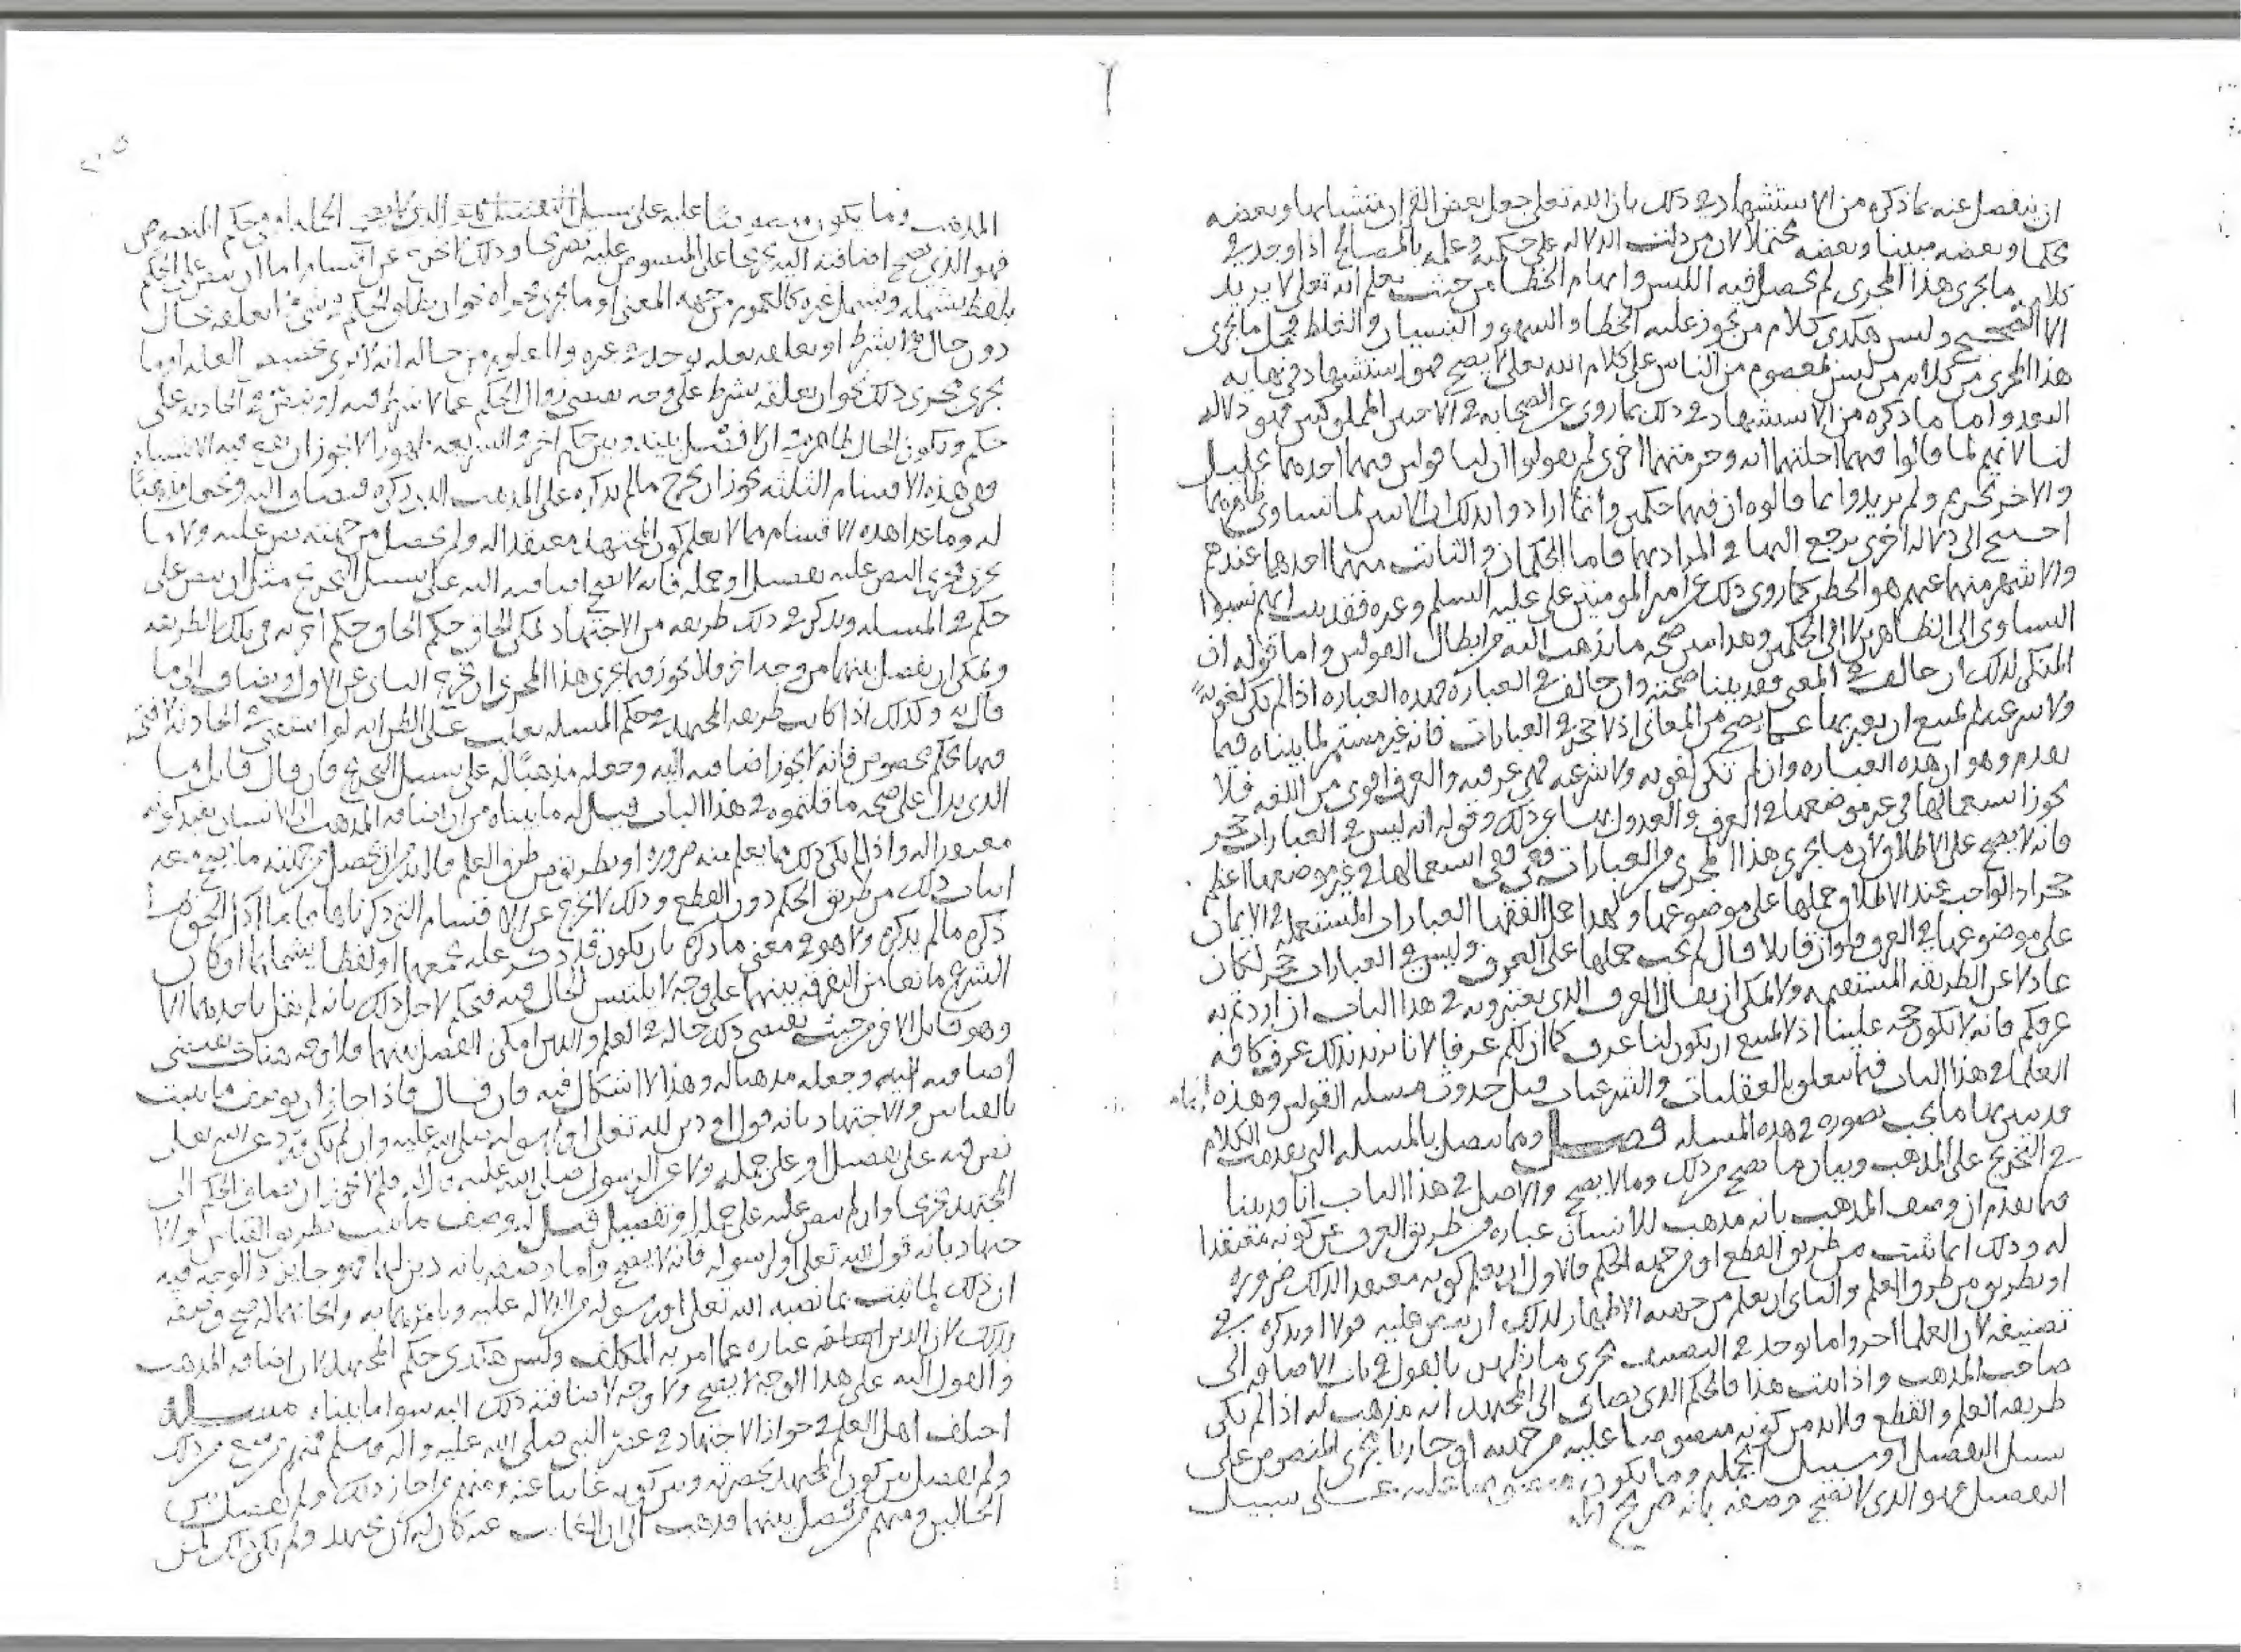 ان ينفصل عنه بما ذكره من الاستشهاد في ذلك بان الله تعالى جعل بعض القران متشابها وبعضه
محكما وبعضه مبينا وبعضه محتملا لان من دلت الدلاله على حكمته وعلمه بالمصالح اذا وجد في
كلامه ما يجرى هذا المجرى لم يحصل فيه اللبس وايهام الخطا من حيث يعلم انه تعالى لا يريد
الا الصحيح وليس هكذى كلام من يجوز عليه الخطا والسهو والنسيان والغلط فحمل ما يجرى
هذا المجرى من كلام من ليس بمعصوم من الناس على كلام الله تعالى لا يصح فهو استشهاد في نهايه
البعد واما ما ذكره من الاستشهاد في ذلك بما روى عن الصحابه في الاختين المملوكتين فهو دلاله
لنا لانهم لما قالوا فيهما احلتهما ايه وحرمتهما اخرى لم يقولوا ان لنا قولين فيهما احدهما تحليل
والاخر تحريم ولم يريدوا بما قالوه ان فيهما حكمين وانما ارادوا بذلك ان الايتين لما تساوى ظاهرهما
احتيج الى دلاله اخرى يرجع اليها في المراد بهما فاما الحكمان فالثابت منهما احدهما عندهم
والاشهر منهما عنهم هو الحظر كما روى ذلك عن امير المومنين على عليه السلم وغيره فقد بينا انهم نسبوا
التساوى الى الظاهرين لا الى الحكمين وهذا يبين صحه ما نذهب اليه من ابطال القولين واما قوله ان
المنكر لذلك ان خالف في المعنى فقد بينا صحته وان خالف في العباره فهذه العباره اذا لم تكن لغويه
ولا شرعيه لم يمتنع ان يعبر بها عما يصح من المعانى اذ لا حجر في العبارات فانه غير مستمر لما بيناه فيما
تقدم وهو ان هذه العباره وان لم تكن لغويه ولا شرعيه فهى عرفيه والعرف اقوى من اللغه فلا
يجوز استعمالها في غير موضعها في العرف والعدول بها عن ذلك وقوله انه ليس في العبارات حجر
فانه لا يصح على الاطلاق لان ما يجرى هذا المجرى من العبارات ففى استعمالها في غير موضعها اعظم
حجر اذ الواجب عند الاطلاق حملها على موضوعها ولهذا حمل الفقها العبارات المستعمله في الايمان
على موضوعها في العرف فلو ان قايلا قال لم يجب حملها على العرف وليس في العبارات حجر لكان
عادلا عن الطريقه المستقيمه ولا يمكن ان يقال العرف الذى يعتبرونه في هذا الباب ان اردتم به
عرفكم فانه لا يكون حجه علينا اذ لا يمتنع ان يكون لنا عرف كما ان لكم عرفا لانا نريد بذلك عرف كافه
العلما في هذا الباب فيما يتعلق بالعقليات والشرعيات قبل حدوث مسله القولين وهذه
قد بين بها ما يجب تصوره في هذه المسله فصل ومما يتصل بالمسله التى تقدمت الكلام
في التخريج على المذهب وبيان ما يصح من ذلك وما لا يصح والاصل في هذا الباب انا قد بينا
فيما تقدم ان وصف المذهب بانه مذهب للانسان عباره من طريق العرف عن كونه معتقدا
له وذلك انما يثبت من طريق القطع او من جهه الحكم فالاول ان يعلم كونه معتقدا لذلك ضروره
او بطريق من طرق العلم والثانى ان يعلم من جهه الاظهار لذلك ان ينص عليه قولا او يذكره في
تصنيفه لان العلما اجروا ما يوجد في التصنيف مجرى ما ظهر بالقول في باب الاضافه الى
صاحب المذهب واذا ثبت هذا فالحكم الذى يضاف الى المجتهد انه مذهب له اذا لم يكن
طريقه العلم والقطع فلا بد من كونه منصوصا عليه من جهته او جاريا مجرى المنصوص على
سبيل التفصيل او سبيل الجمله وما يكون منصوصا عليه على سبيل
التفصيل هو الذى لا يفتح وصفه بانه صريح
المذهب وما يكون منصوصا عليه على سبيل الجمله او في حكم المنصوص
فهو الذى يصح اضافته اليه تخريجا على المنصوص عليه تصريحا وذلك لا يخرج عن اقسام اما ان ينص على الحكم
بلفظ يشمله ويشمل غيره كالعموم من جهه المعنى او ما يجرى مجراه نحو ان يطلق الحكم في شى او يعلقه بحال
دون حال او بشرط او يعلقه بعله توجد في غيره والمعلوم من حاله انه لا يرى تخصيص العله او ما
يجرى مجرى ذلك نحو ان يعلقه بشرط على وجه يقتضى زوال الحكم عما لا شرط فيه او ينص في الحادثه على
حكم وتكون الحال ظاهره في ان لا فصل بينه وبين حكم اخر في الشريعه
فهى هذه الاقسام الثلثه يجوز ان يخرج ما لم يذكره على المذهب الذى ذكره فيضاف اليه ويجعل مذهبا
له وما عدا هذه الاقسام مما لا يعلم كون المجتهد معتقدا له ولم يحصل من جهته نص عليه ولا ما
يجرى مجرى النص عليه تفصيلا او جمله فانه لا يصح اضافته اليه على سبيل التخريج مثل ان ينص على
حكم في المسله ويذكر في ذلك طريقه من الاجتهاد يمكن الحاق حكم اخر به في تلك الطريقه
ويمكن ان يفصل بينهما من وجه اخر فلا يجوز فيما يجرى هذا المجرى ان يخرج الثانى عن الاول ويضاف الى ما
قال به وكذلك اذا كانت طريقه المجتهد في حكم المسله يغلب على الظن انه لو استفتى في الحادثه لافتى
فيها بحكم مخصوص فانه لا يجوز اضافته اليه وجعله مذهبا له على سبيل التخريج فان قال قايل وما
الذى يدل على صحه ما قلتموه في هذا الباب قيل له ما بيناه من ان اضافه المذهب الى الانسان يفيد كونه
معتقدا له واذا لم يكن ذلك مما يعلم منه ضروره او بطريق من طرق العلم فلا بد من ان يحصل من جهته ما يصح معه
اثبات ذلك من طريق الحكم دون القطع وذلك لا يخرج عن الاقسام التى ذكرناها
ذكره ما لم يذكره ولا هو في معنى ما ذكره بان يكون قد ذكر عله تجمعهما او لفظا يشملهما او كان
الشرع مانعا من التفرقه بينهما على وجه لا يلتبس الحال فيه فيحكم لاجل ذلك بانه لم يقل باحدهما الا
وهو قايل بالاخر من حيث يقتضى ذلك حاله في العلم والدين امكن الفصل بينهما فلا وجه هناك يقتضى
اضافته اليه وجعله مذهبا له وهذا لا اشكال فيه فان قال فاذا جاز ان يوصف ما يثبت
بالقياس والاجتهاد بانه قول او دين لله تعالى او لرسوله صلى الله عليه وان لم يكن قد ورد عن الله تعالى
نص فيه على تفصيل او على جمله ولا عن الرسول صلى الله عليه واله فلم لا يجوز ان يضاف الحكم الى
المجتهد تخريجا وان لم ينص عليه على جمله او تفصيل قيل له وصف ما يثبت بطريق القياس والا
جتهاد بانه قول لله تعالى او لرسوله فانه لا يصح واما وصفه بانه دين لهما فهو جايز والوجه فيه
ان ذلك لما يثبت بما نصبه الله تعالى او رسوله من الدلاله عليه وبامرهما به وايجابهما له صح وصفه
بذلك لان الدين عباره عما امر به المكلف وليس هكذى حكم المجتهد لان اضافه المذهب
والقول اليه على هذا الوجه لا يصح ولا وجه لاضافته ذلك اليه سوا ما بيناه مسله
اختلف اهل العلم في جواز الاجتهاد في عصر النبى صلى الله عليه واله وسلم فمنهم من منع من ذلك
ولم يفصل بين كون المجتهد بحضرته وبين كونه غايبا عنه ومنهم من اجاز ذلك ولم يفصل بين
الحالين ومنهم من فصل بينهما فذهب الى ان الغايب عنه كان له ان يجتهد ولم يكن ذلك لمن